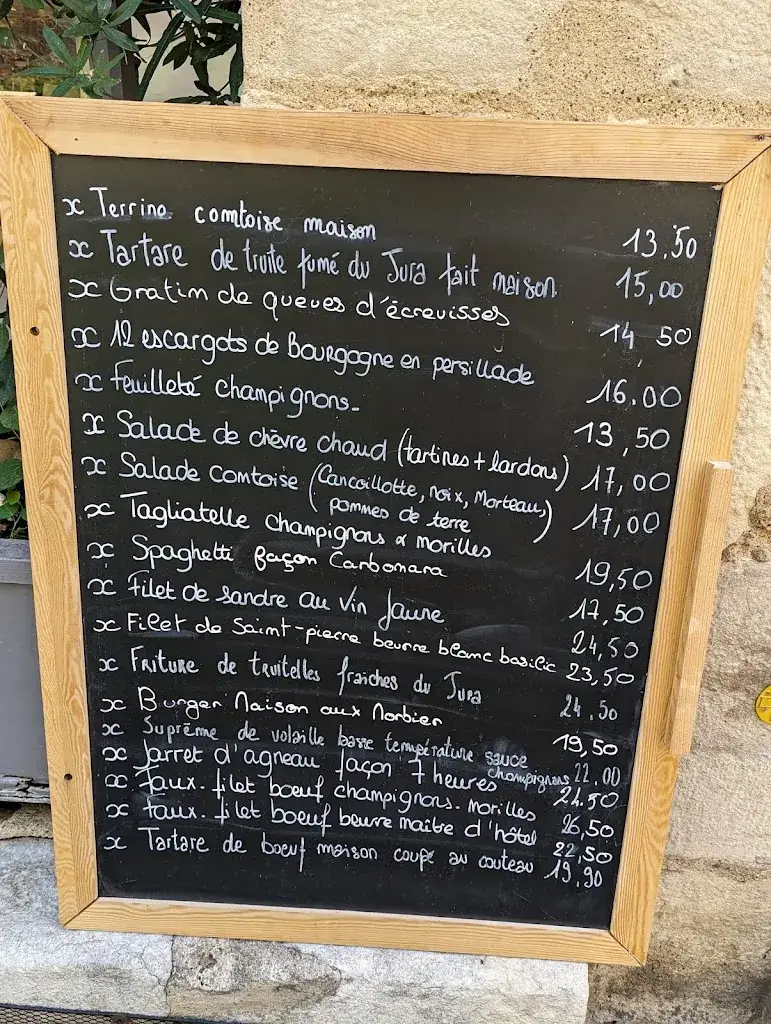 x Terrine comtoise maison 13.50
x Tartare de truite fumé du Jura fait maison 15,00
x Gratin de queues d'écrevisses 14,50
x 12 escargots de Bourgogne en persillade 16.00
x feuilleté champignons. 13,50
x Salade de chèvre chaud (tartines + lardons) 17,00
x Salade comtoise (Cancoillotte, noix, Morteau,
pommes de terre) 17,00
x Tagliatelle champignons & morilles 19,50
x Spaghetti façon Carbonara 17,50
x filet de sandre au vin Jaune 24,50
x Filet de Saint-pierre beurre blanc basilic 23,50
x Friture de truitelles fraîches du Jura 24,50
x Burger Maison aux Morbier 19,50
x Suprême de volaille basse température sauce
champignons 22.00
x Jarret d'agneau façon 7 heures 24.50
x faux. filet boeuf champignons. morilles 26,50
x faux. filet boeuf beurre maître d'hôtel 22,50
x Tartare de boeuf maison coupé au couteau 19,90